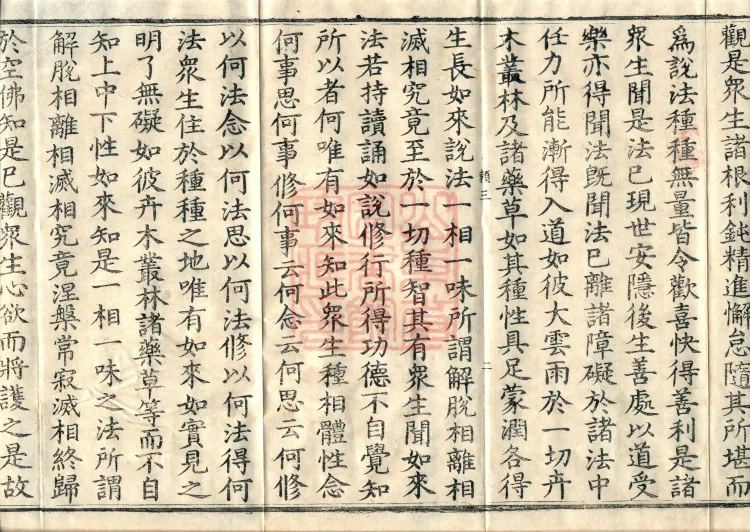 觀是眾生諸根利鈍精進懈怠隨其所堪而
為說法種種無量皆令歡喜快得善利是諸
眾生聞是法已現世安隱後生善處以道受
樂亦得聞法旣聞法已離諸障礙於諸法中
任力所能漸得入道如彼大雲雨於一切卉
木叢林及諸藥草如其種性具足蒙潤各得
頼三 二
生長如來說法一相一味所謂解脫相離相
滅相究竟至於一切種智其有眾生聞如來
法若持讀誦如說修行所得功德不自覺知
所以者何唯有如來知此眾生種相體性念
何事思何事修何事云何念云何思云何修
以何法念以何法思以何法修以何法得何
法眾生住於種種之地唯有如來如實見之
明了無礙如彼卉木叢林諸藥草等而不自
知上中下性如來知是一相一味之法所謂
解脫相離相滅相究竟涅槃常寂滅相終歸
於空佛知是已觀眾生心欲而將護之是故